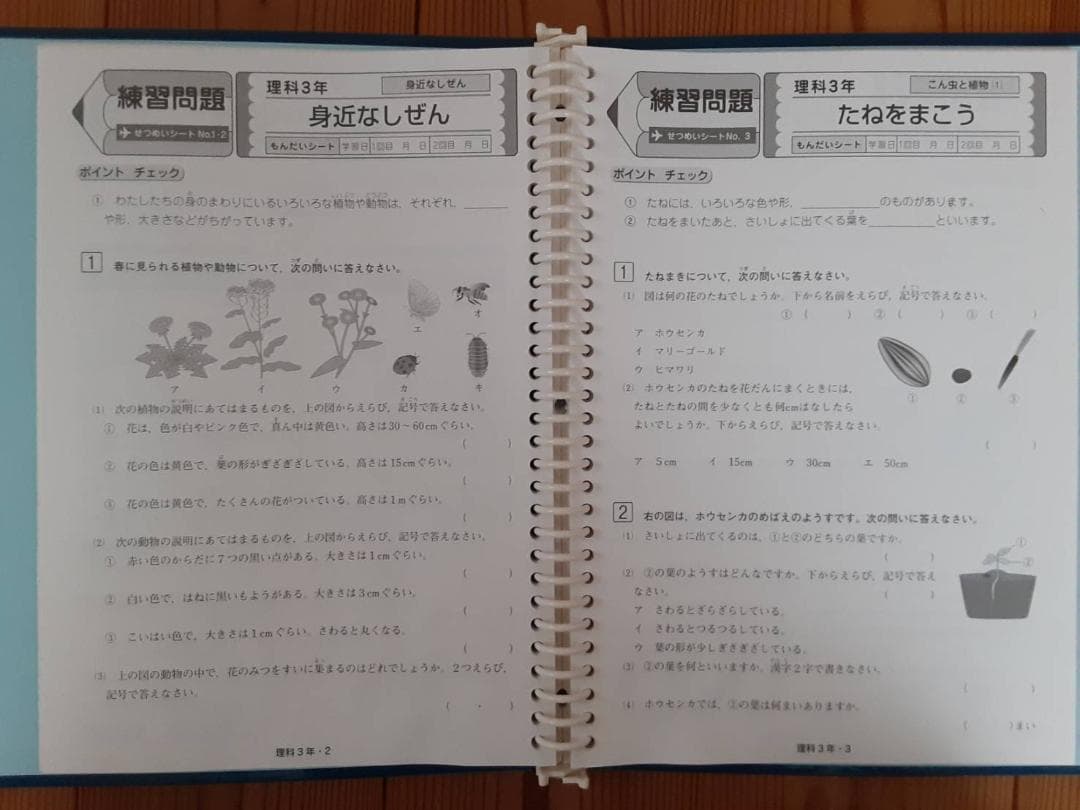 練習問題
せつめいシートNo.1・2
理科3年
身近なしぜん
身近なしぜん
もんだいシート 学習日 1回目 月 日 2回目 月 日
ポイント チェック
① わたしたちの身のまわりにいるいろいろな植物や動物は、それぞれ、______
や形、大きさなどがちがっています。
1 春に見られる植物や動物について、次の問いに答えなさい。
ア イ ウ エ オ カ キ
(1) 次の植物の説明にあてはまるものを、上の図からえらび、記号で答えなさい。
① 花は、色が白やピンク色で、真ん中は黄色い。高さは30～60cmぐらい。
( )
② 花の色は黄色で、葉の形がぎざぎざしている。高さは15cmぐらい。
( )
③ 花の色は黄色で、たくさんの花がついている。高さは1mぐらい。
( )
(2) 次の動物の説明にあてはまるものを、上の図からえらび、記号で答えなさい。
① 赤い色のからだに7つの黒い点がある。大きさは1cmぐらい。
( )
② 白い色で、はねに黒いもようがある。大きさは3cmぐらい。
( )
③ こいはい色で、大きさは1cmぐらい。さわると丸くなる。
( )
(3) 上の図の動物の中で、花のみつをすいに集まるのはどれでしょうか。2つえらび、
記号で答えなさい。
( ・ )
理科3年・2
練習問題
せつめいシートNo.3
理科3年
こん虫と植物(1)
たねをまこう
もんだいシート 学習日 1回目 月 日 2回目 月 日
ポイント チェック
① たねには、いろいろな色や形、____________のものがあります。
② たねをまいたあと、さいしょに出てくる葉を__________といいます。
1 たねまきについて、次の問いに答えなさい。
(1) 図は何の花のたねでしょうか。下から名前をえらび、記号で答えなさい。
① ( ) ② ( ) ③ ( )
ア ホウセンカ
イ マリーゴールド
ウ ヒマワリ
① ② ③
(2) ホウセンカのたねを花だんにまくときには、
たねとたねの間を少なくとも何cmはなしたら
よいでしょうか。下からえらび、記号で答えなさい。
( )
ア 5cm イ 15cm ウ 30cm エ 50cm
2 右の図は、ホウセンカのめばえのようすです。次の問いに答えなさい。
(1) さいしょに出てくるのは、①と②のどちらの葉ですか。
( )
① ②
(2) ②の葉のようすはどんなですか。下からえらび、記号で答え
なさい。 ( )
ア さわるとざらざらしている。
イ さわるとつるつるしている。
ウ 葉の形が少しぎざぎざしている。
(3) ②の葉を何といいますか。漢字2字で書きなさい。
( )
(4) ホウセンカでは、②の葉は何まいありますか。
( )まい
理科3年・3